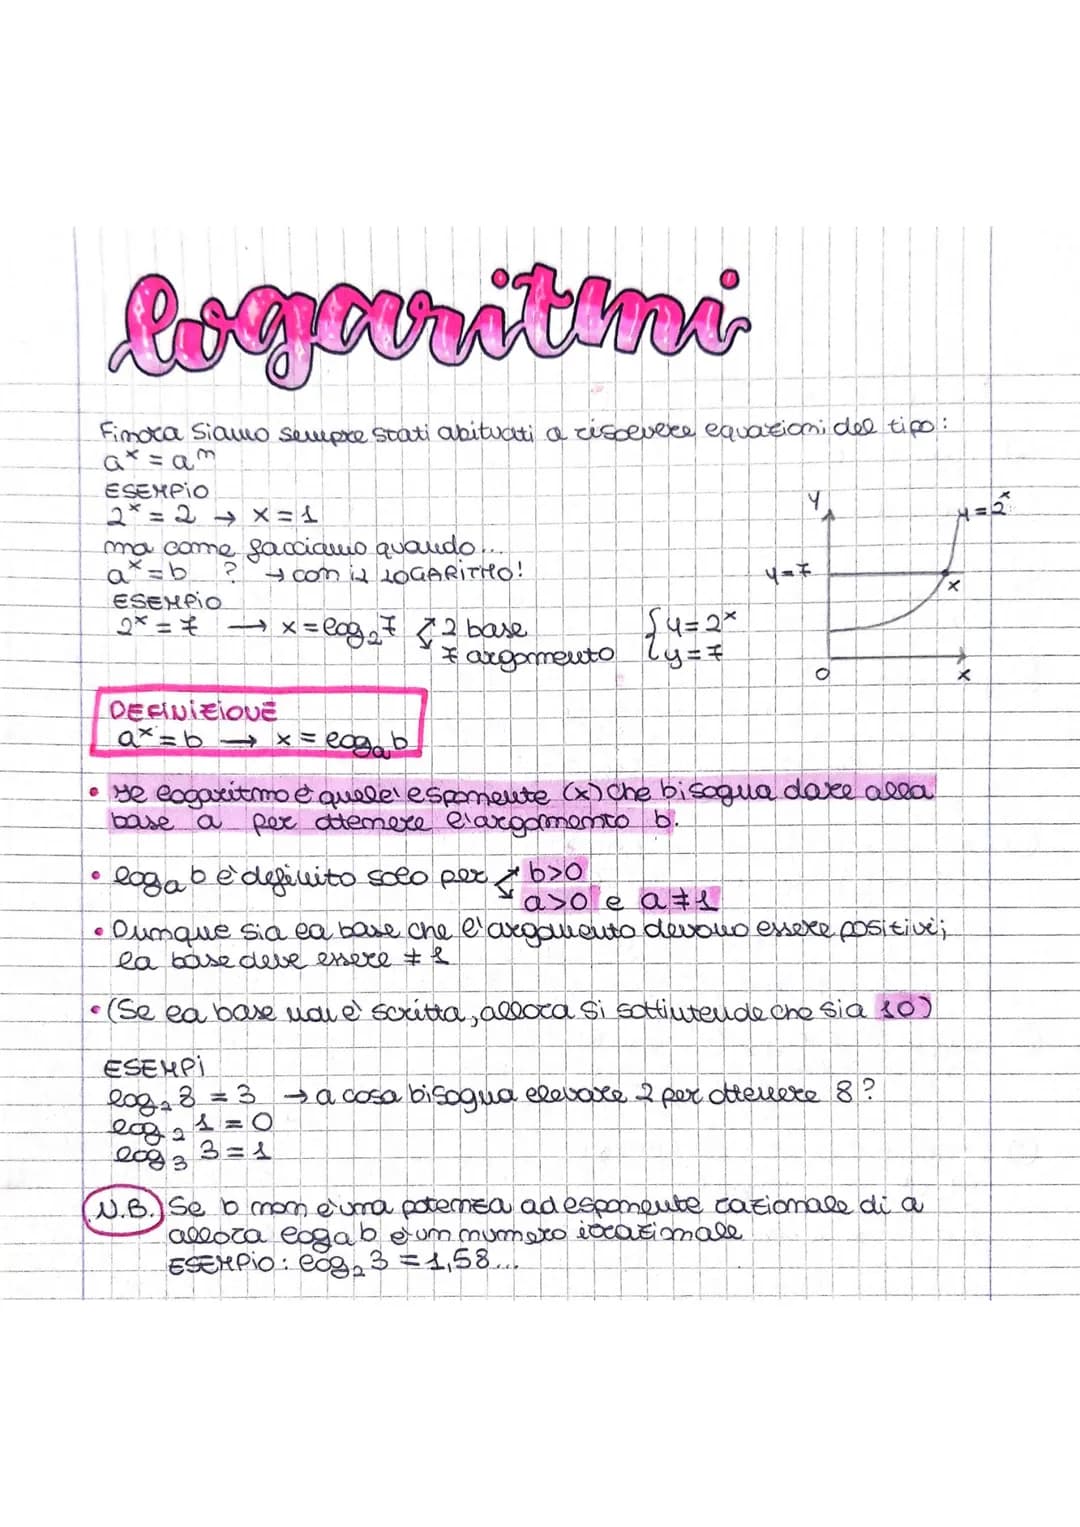 logaritmi
Finora siamo sempre stati abituati a risolvere equazioni del tipo:
aˣ = aⁿ
ESEMPIO
2ˣ = 2 → x = 1
ma come facciamo quando...
aˣ = b ? → con il LOGARITMO!
ESEMPIO
2ˣ = 7 → x = log₂7 2 base
7 argomento
{y = 2ˣ
y = 7
y
y = 2ˣ
y = 7
x
O
x
DEFINIZIONE
aˣ = b → x = logₐb
• Il logaritmo è quell'esponente (x) che bisogna dare alla
base a per ottenere l'argomento b.
• logₐb è definito solo per b>0
a>0 e a≠1
• Dunque sia la base che l'argomento devono essere positivi;
la base deve essere ≠ 1
• (Se la base non è scritta, allora si sottintende che sia 10)
ESEMPI
log₂8 = 3 → a cosa bisogna elevare 2 per ottenere 8?
log₂1 = 0
log₃3 = 1
N.B. Se b non è una potenza ad esponente razionale di a
allora logₐb è un numero irrazionale
ESEMPIO: log₂3 = 1,58...